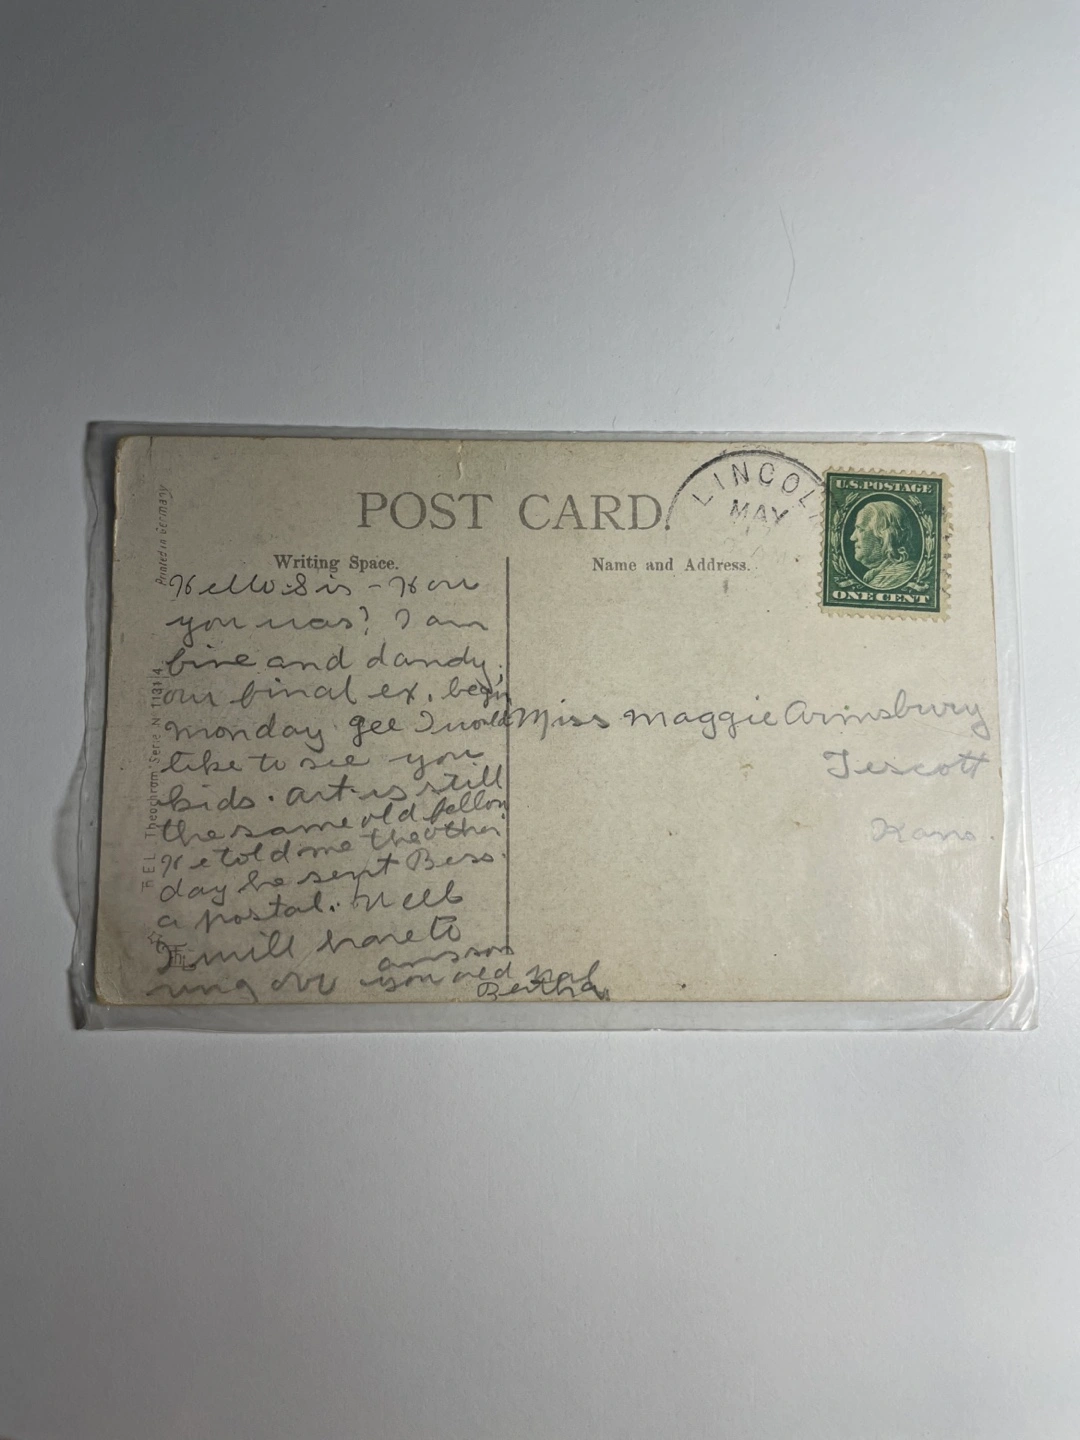 POST CARD.
LINCOL
MAY
U.S. POSTAGE
ONE CENT
Printed in Germany
Writing Space.
Name and Address.
Hello Sis - How
you uas? I am
fine and dandy,
our final ex. begin
monday gee I would
like to see you
kids. Art is still
the same old fellow
He told me the other
day he sent Bess.
a postal. Well
I will have to
ring ans soon
you old pal
Bertha
Miss Maggie Armsbury
Tescott
Kans.
Theochrom Serie N 1131 4